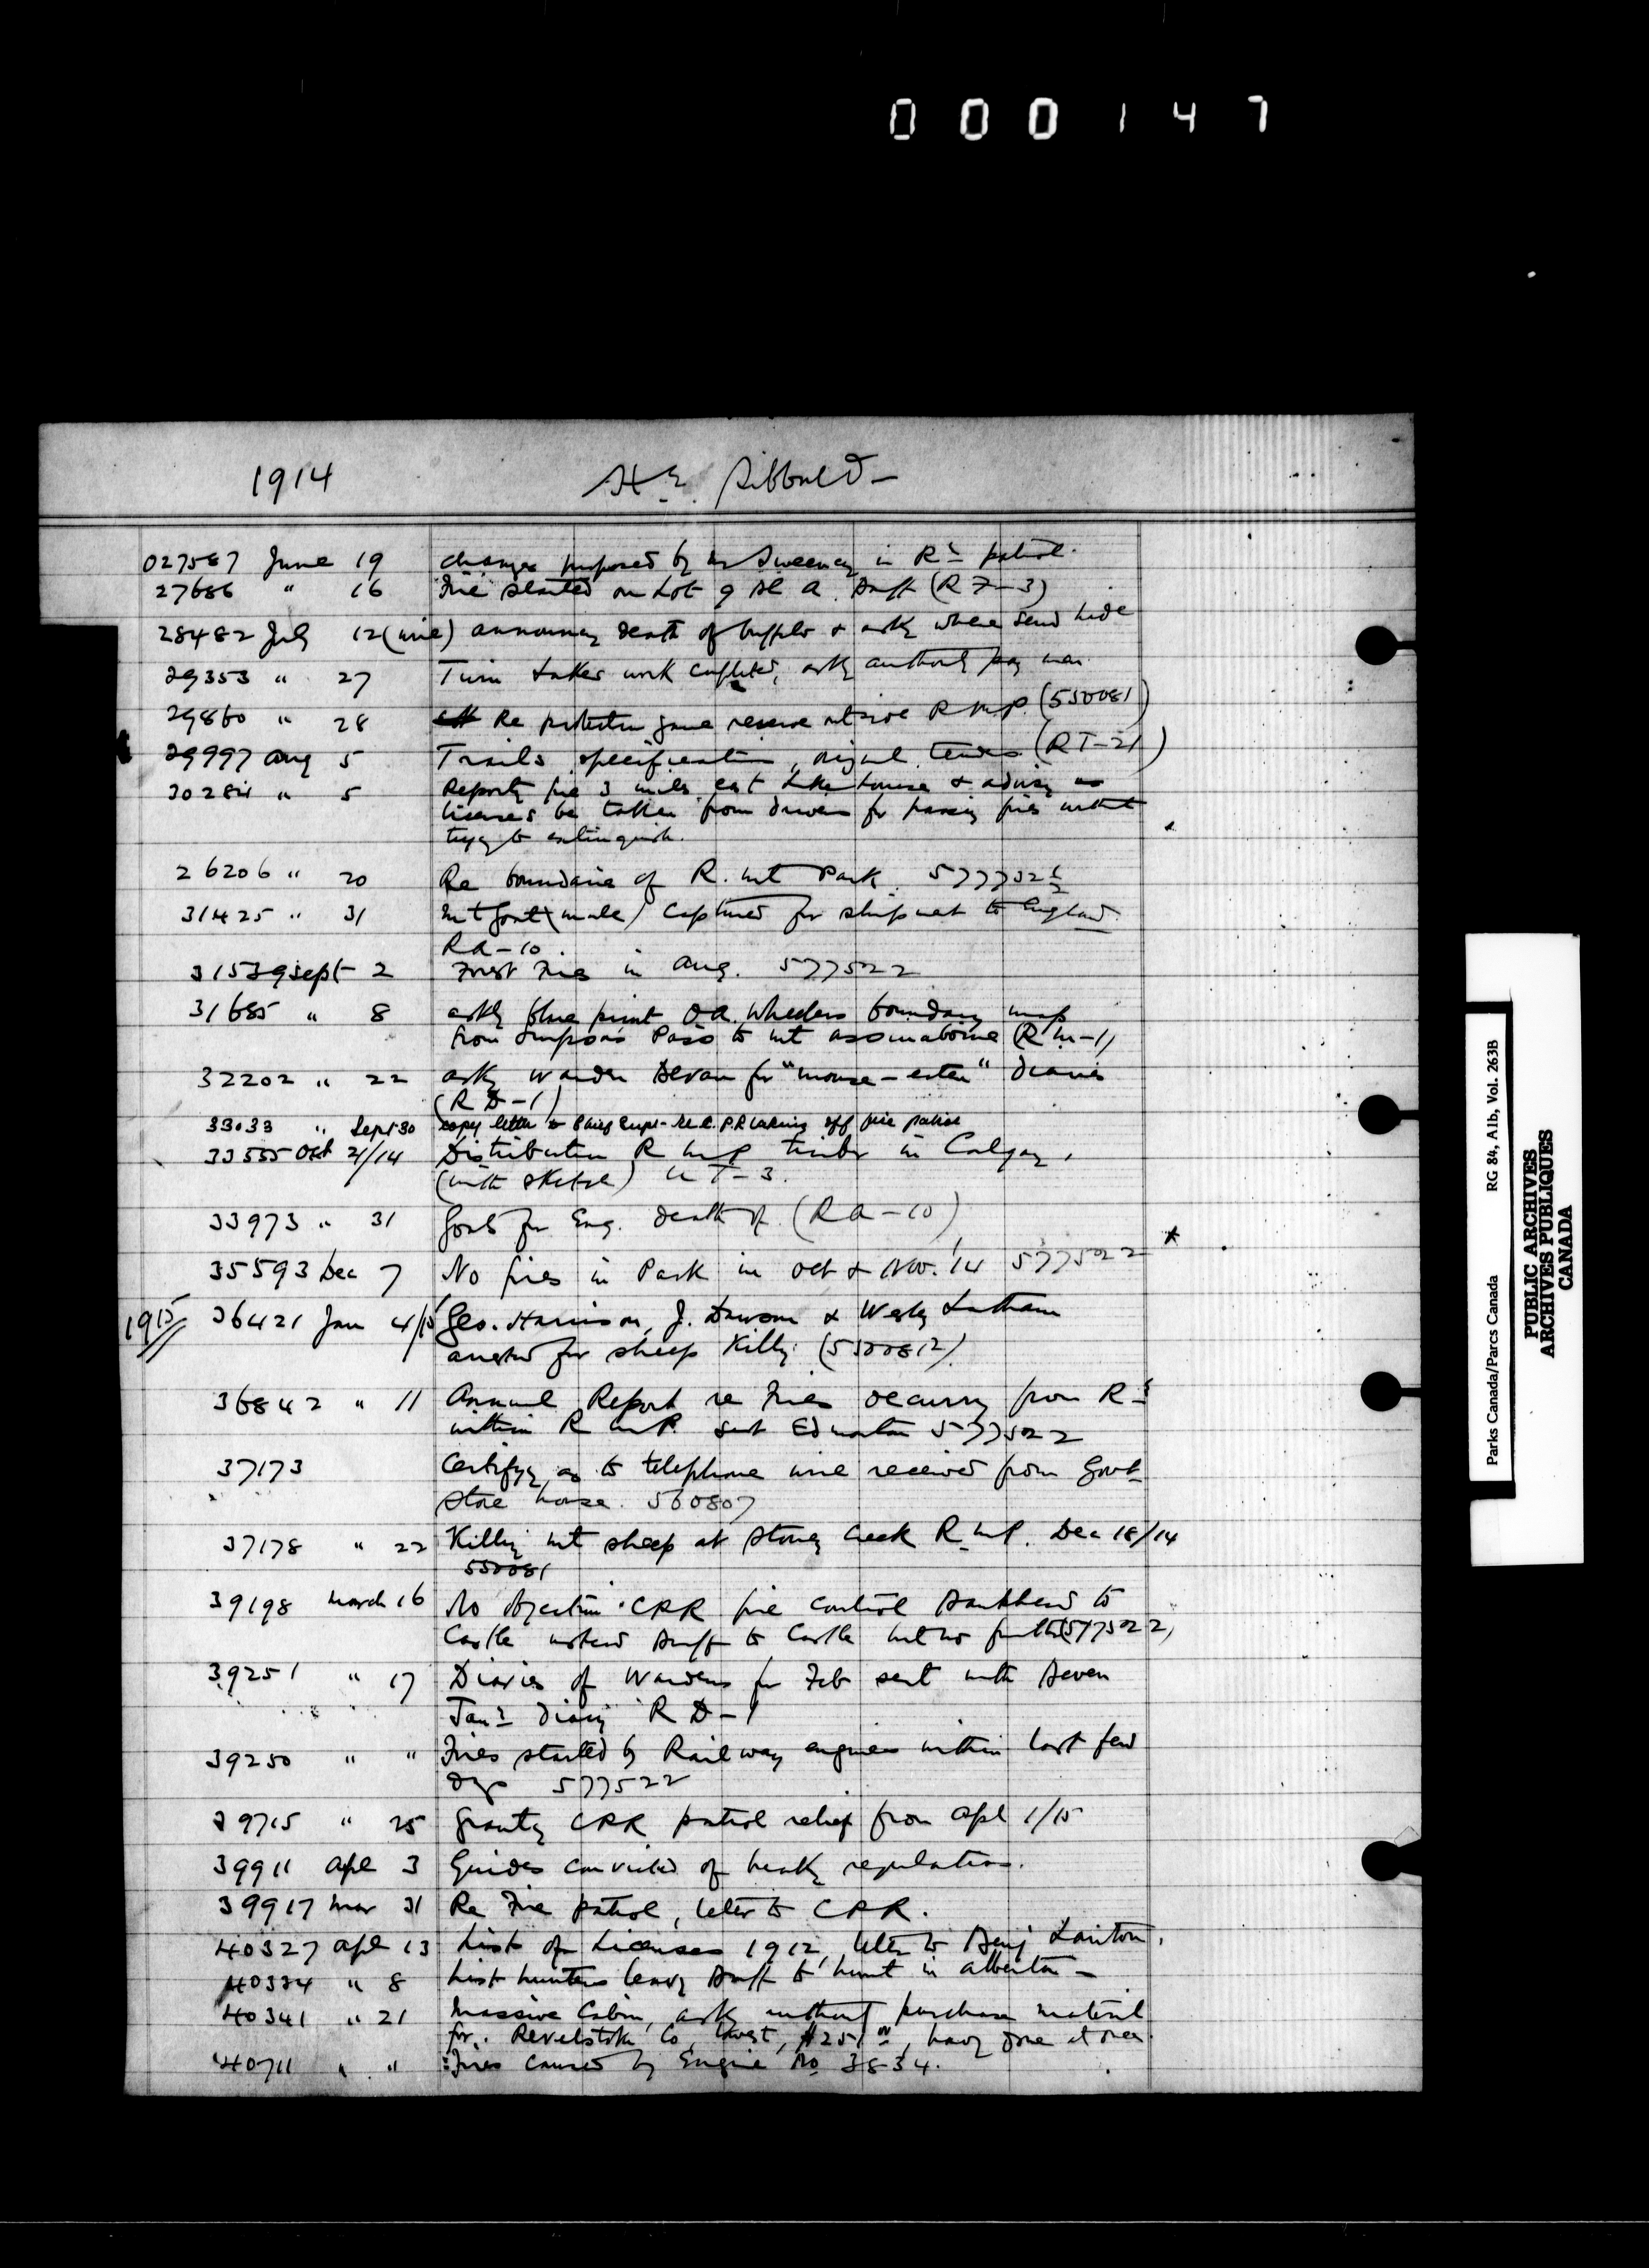 000147
1914 H.E. Sibbald
027587 June 19 changes proposed by Mr Sweeney in Ry patrol.
27686 " 16 Fire started on Lot 9 Bl a Banff (R F-3)
28482 July 12 (wire) announcing death of buffalo & asking where send hide
29353 " 27 Twin Lakes work completed, asking authority pay men.
29860 " 28 Re protection game reserve outside R M P. (550081)
29997 Aug 5 Trails specification, original tenders (RT-21)
30284 " 5 Reporting fire 3 miles east Lake Louise & advising
licenses be taken from drivers for passing fires without
trying to extinguish.
26206 " 20 Re boundaries of R. Mt Park.
31425 " 31 Mt goat (male) captured for shipment to England
RA-10.
31539 Sept 2 Forest Fires in Aug. 577522
31685 " 8 asking blue print A.O. Wheelers boundary map
from Simpsons Pass to Mt Assinaboine (R M-1)
32202 " 22 asking Warden Bevan for "mouse-eaten" diaries
(R D-1)
33033 " Sept 30 copy letter to Chief Supt. re C.P.R taking off fire patrol
33555 Oct 21/14 Distribution R M P timber in Calgary,
(with sketch) U T-3.
33973 " 31 Goats for Eng. death of (RA-10)
35593 Dec 7 No fires in Park in Oct & Nov. '14 577522 *
1915 36421 Jan 4/15 Geo. Harrison, J. Dawson & Wesly Latham
arrested for sheep killing (550081)
36842 " 11 Annual Report re Fires occurring from Rys
within R M P. sent Edmonton 577522
37173 Certifying as to telephone wire received from Govt
store house. 560807
37178 " 22 Killing mt sheep at Stoney Creek R M P. Dec 18/14
550081
39198 March 16 No objection CPR fire control Bankhead to
Castle instead Banff to Castle but no further (577522)
39251 " 17 Diaries of Wardens for Feb sent with Bevan
Jan's Diary R D-1
39250 " " Fires started by Railway engines within last few
days 577522
39715 " 25 Granting CPR patrol relief from Apl 1/15
39911 Apl 3 Guides convicted of breaking regulations.
39917 Mar 31 Re Fire patrol, letter to CPR.
40327 Apl 13 List of Licenses 1912, letter to Benj Lawton.
40334 " 8 List hunters leaving Banff to hunt in Alberta -
40341 " 21 Massive Cabin, asking authority purchase material
for. Revelstoke Co, lowest, $251 00, having done at once.
40711 " " Fires caused by Engine No 3834.
Parks Canada/Parcs Canada RG 84, A1b, Vol. 263B
PUBLIC ARCHIVES
ARCHIVES PUBLIQUES
CANADA